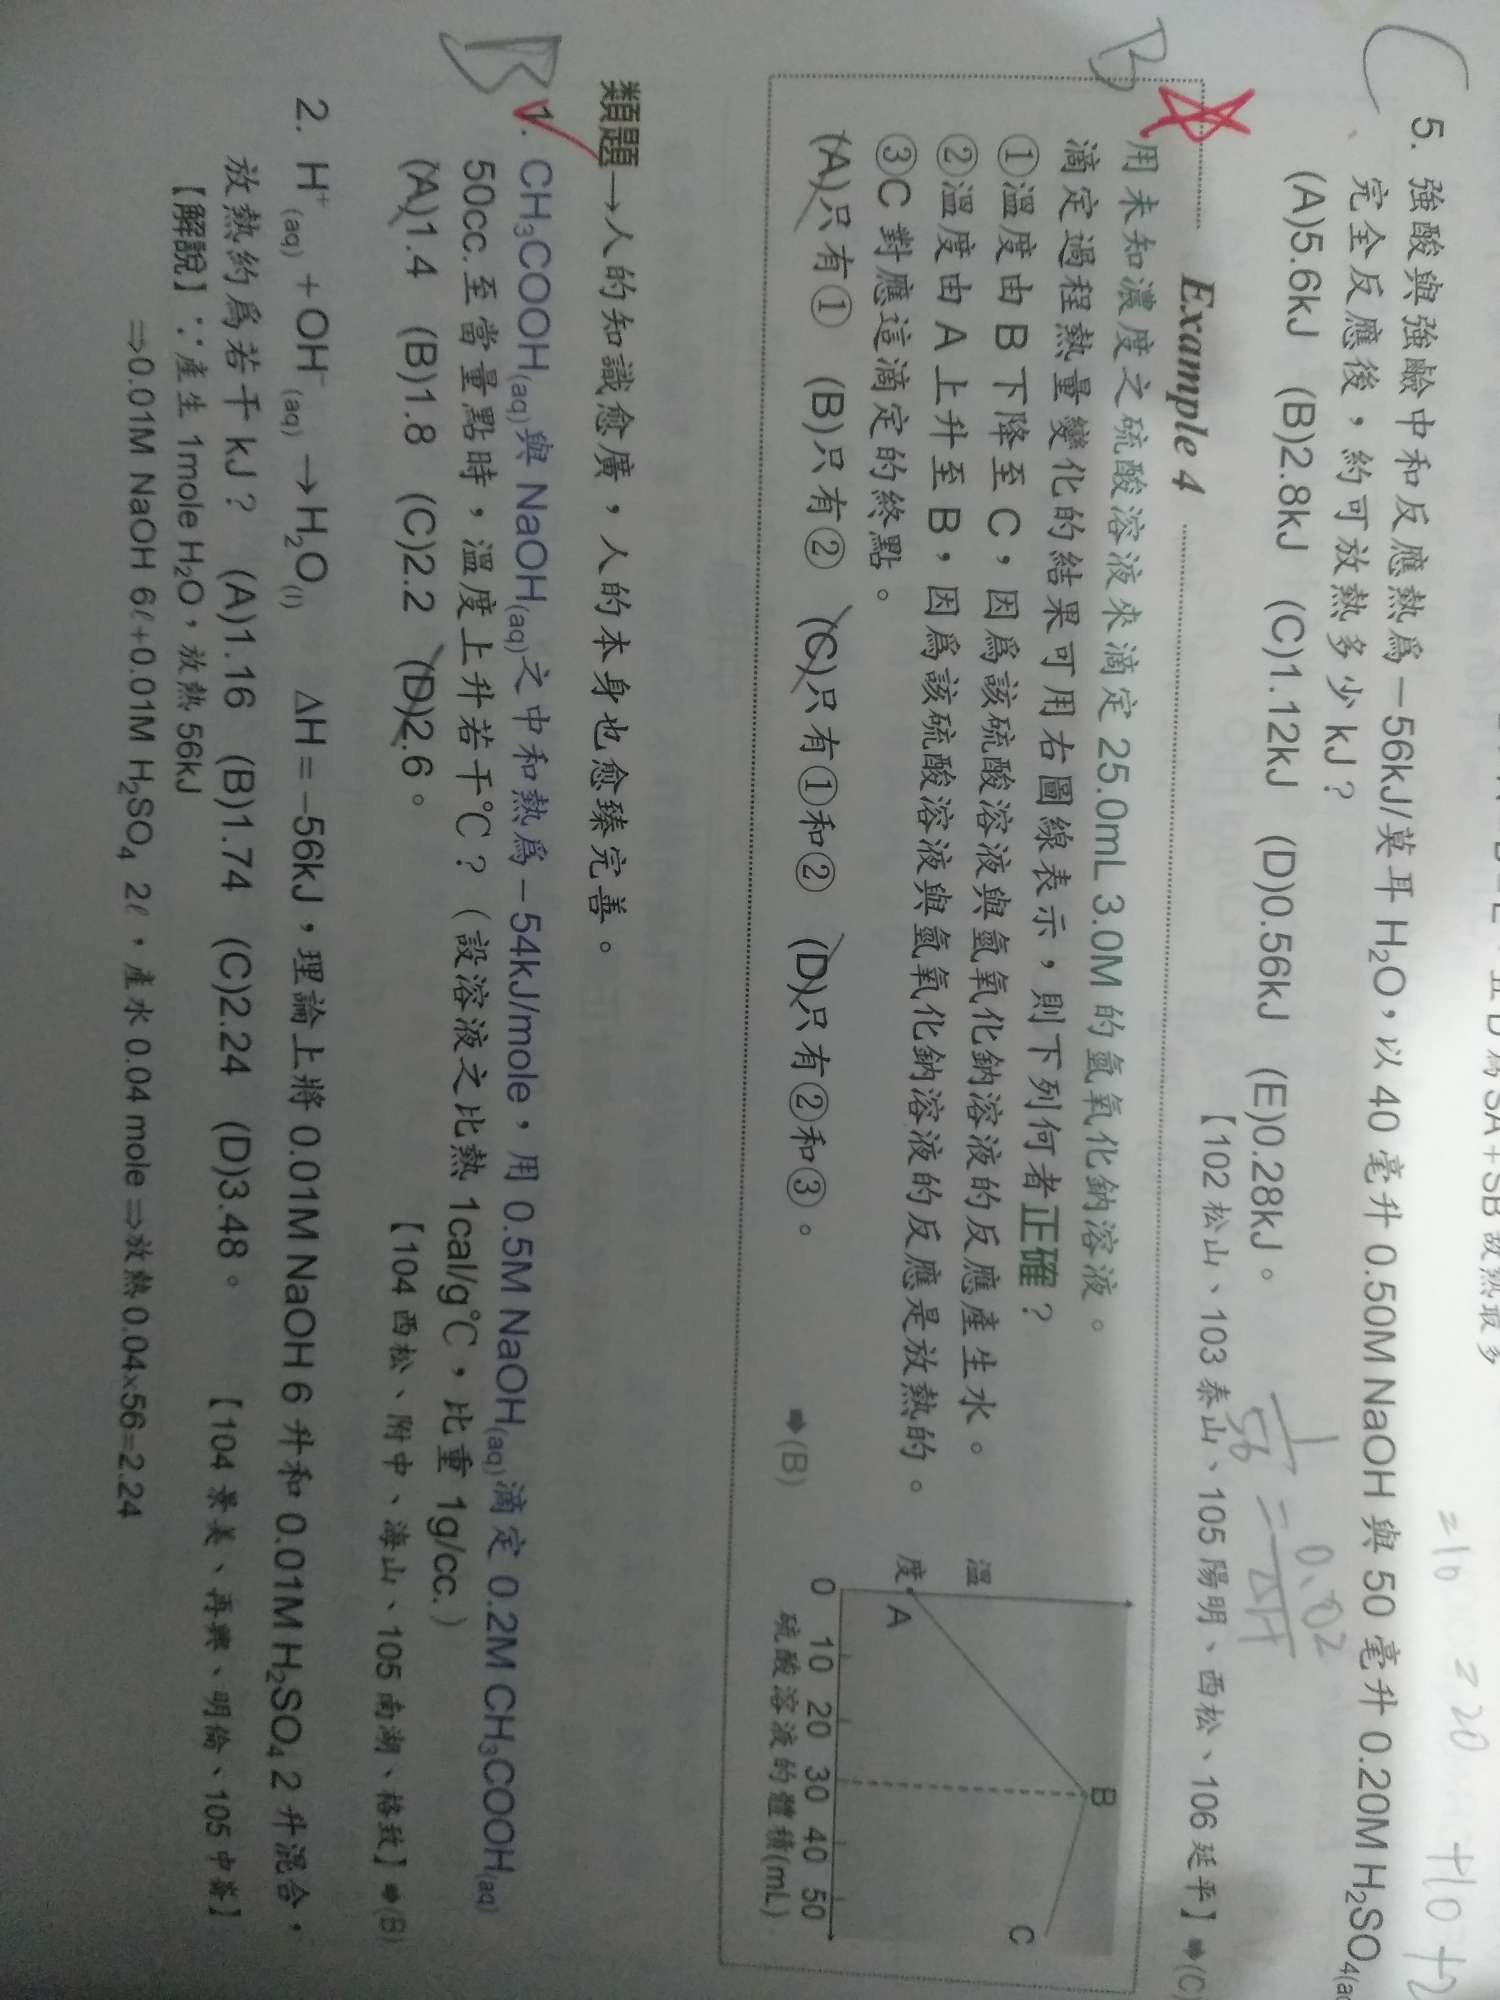 5. 強酸與強鹼中和反應熱為－56kJ/莫耳 H₂O，以 40 毫升 0.50M NaOH 與 50 毫升 0.20M H₂SO₄(a
完全反應後，約可放熱多少 kJ？
(A)5.6kJ (B)2.8kJ (C)1.12kJ (D)0.56kJ (E)0.28kJ。
【102 松山、103 泰山、105 陽明、西松、106 延平】➡(C)
=10
=20
+10+2
1/56 = 0.02/ΔH
Example 4
B
用未知濃度之硫酸溶液來滴定 25.0mL 3.0M 的氫氧化鈉溶液。
滴定過程熱量變化的結果可用右圖線表示，則下列何者正確？
①溫度由 B 下降至 C，因為該硫酸溶液與氫氧化鈉溶液的反應產生水。
②溫度由 A 上升至 B，因為該硫酸溶液與氫氧化鈉溶液的反應是放熱的。
③C 對應這滴定的終點。
(A)只有① (B)只有② (C)只有①和② (D)只有②和③。
➡(B)
溫度
A
B
C
0 10 20 30 40 50
硫酸溶液的體積(mL)
類題→人的知識愈廣，人的本身也愈臻完善。
B
1. CH₃COOH(aq)與 NaOH(aq)之中和熱為－54kJ/mole，用 0.5M NaOH(aq)滴定 0.2M CH₃COOH(aq)
50cc.至當量點時，溫度上升若干℃？（設溶液之比熱 1cal/g℃，比重 1g/cc.）
(A)1.4 (B)1.8 (C)2.2 (D)2.6。
【104 西松、附中、海山、105 南湖、格致】➡(B)
2. H⁺(aq)＋OH⁻(aq)→H₂O(l) ΔH＝−56kJ，理論上將 0.01M NaOH 6 升和 0.01M H₂SO₄ 2 升混合，
放熱約為若干 kJ？ (A)1.16 (B)1.74 (C)2.24 (D)3.48。
【104 景美、再興、明倫、105 中崙】
【解說】∵產生 1mole H₂O，放熱 56kJ
⇒0.01M NaOH 6ℓ+0.01M H₂SO₄ 2ℓ，產水 0.04 mole⇒放熱 0.04×56=2.24